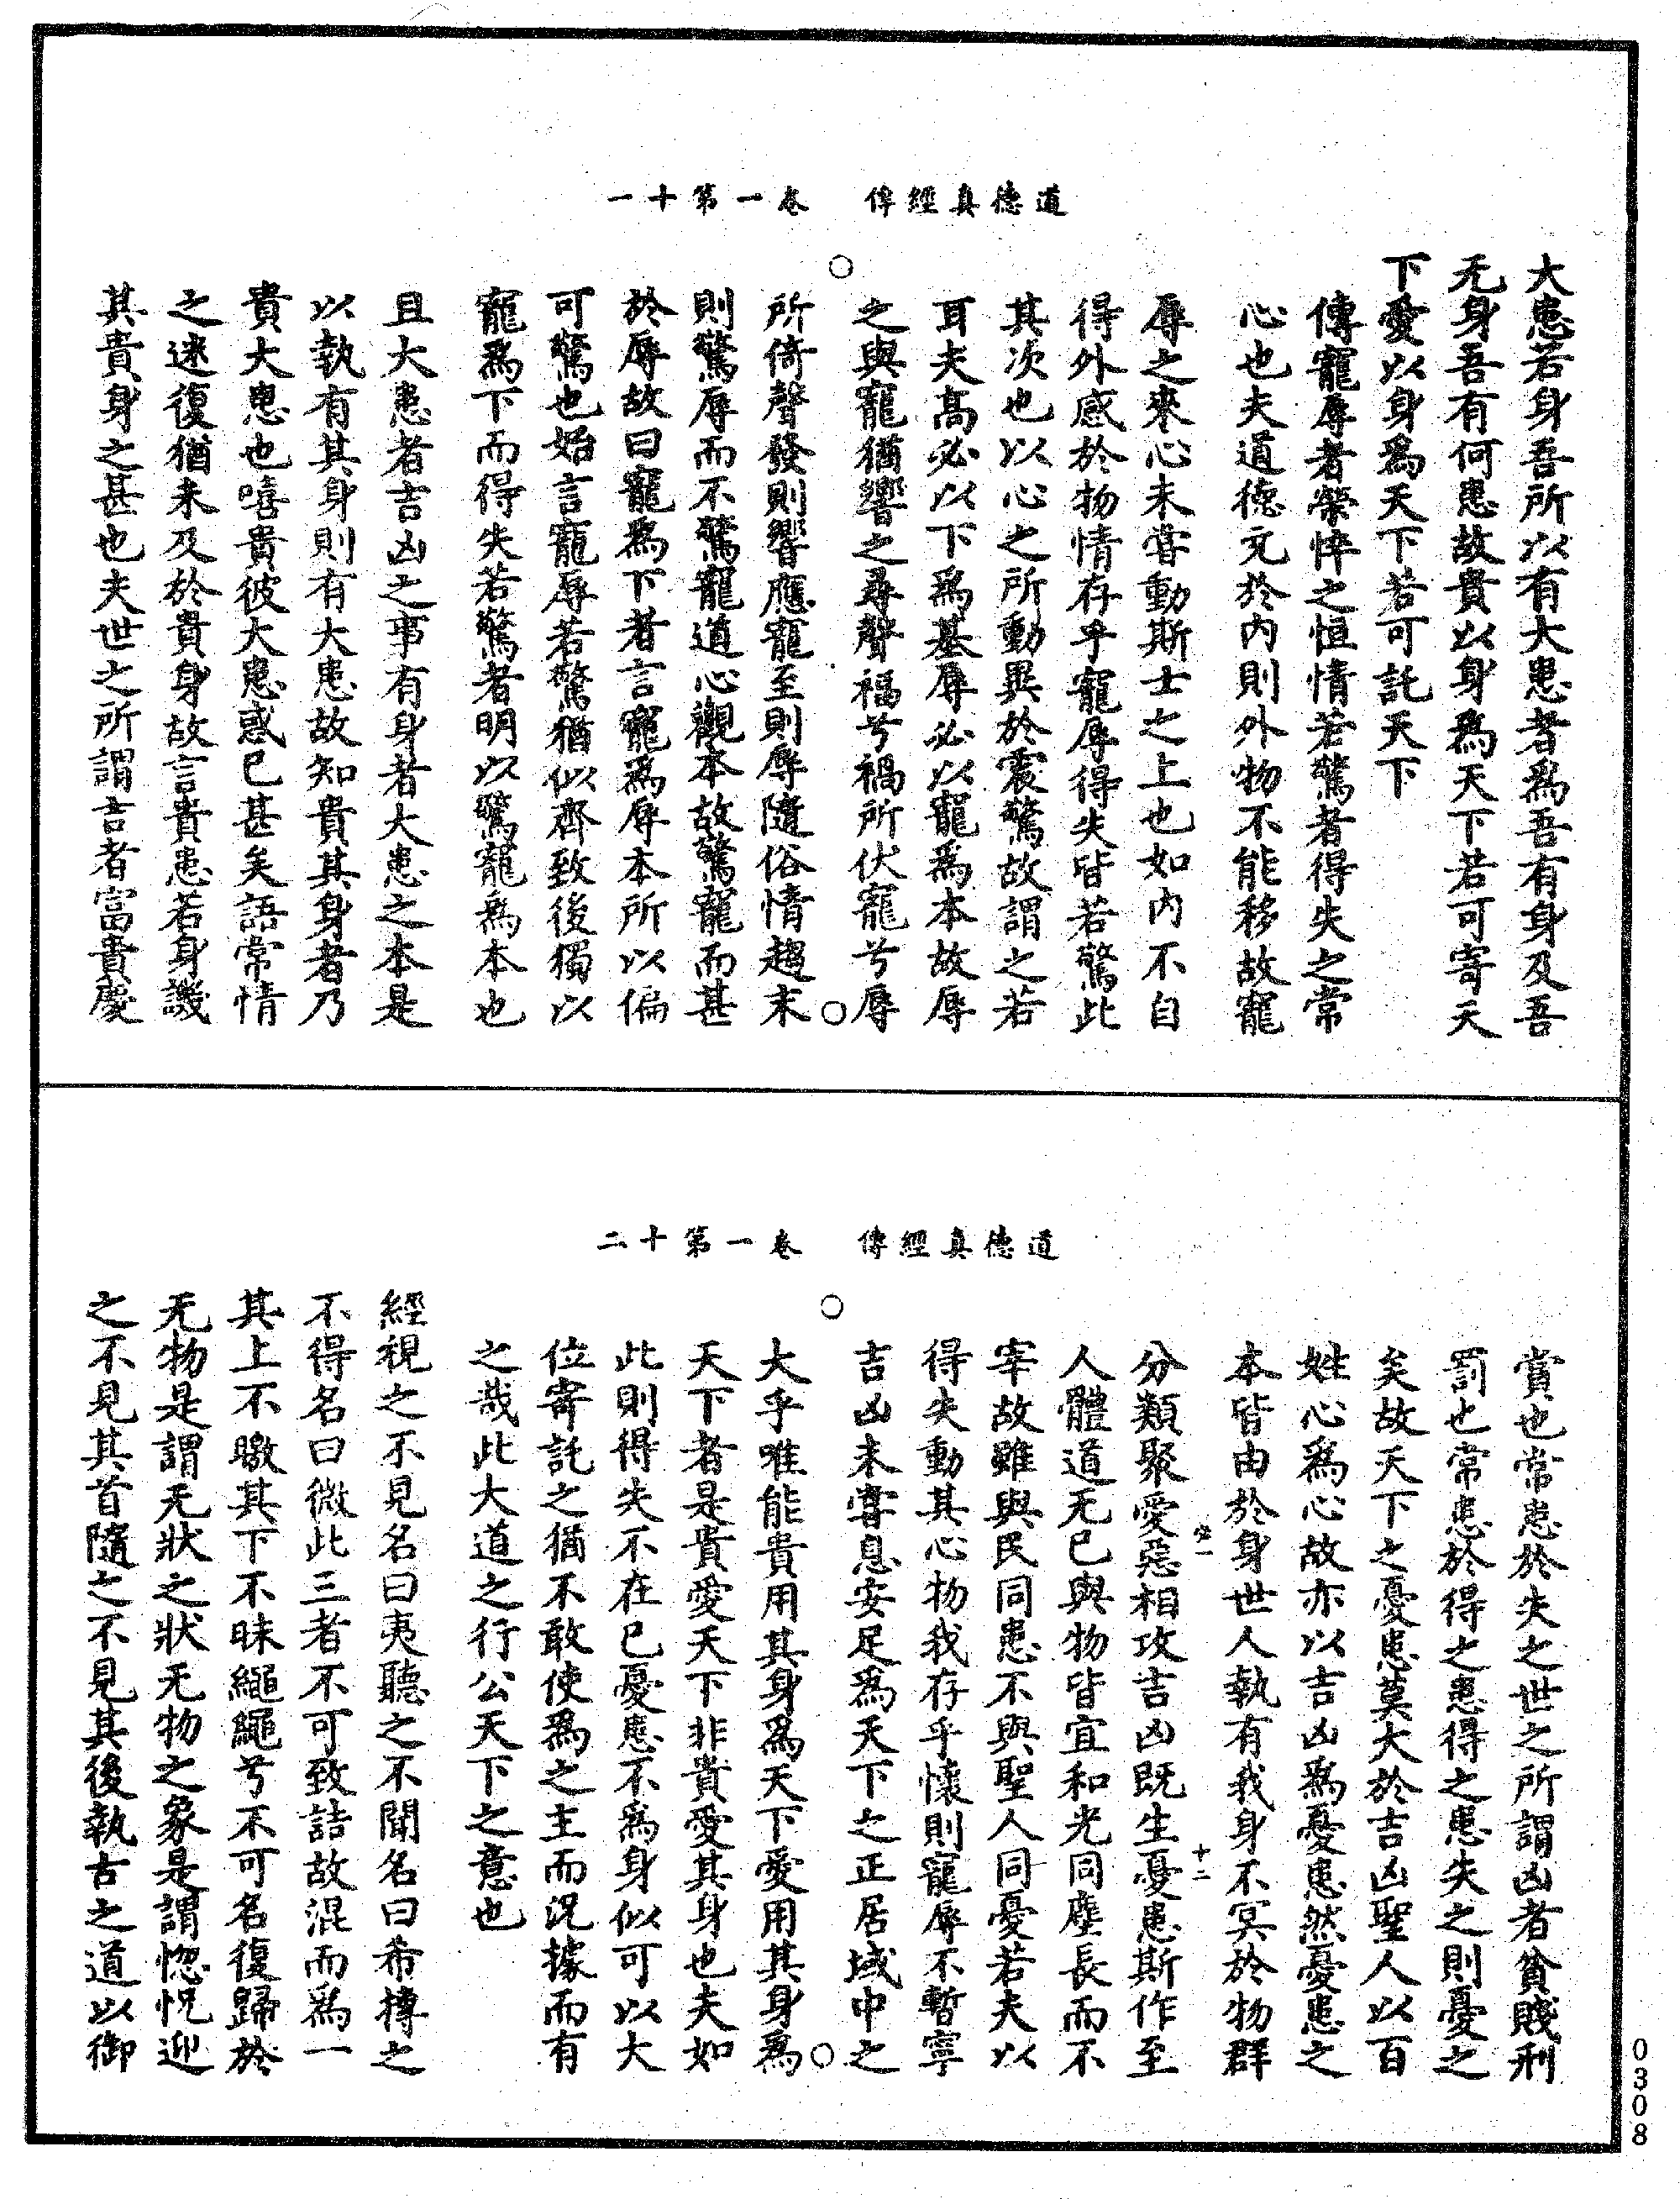 道德真經傳　卷一第十一
大患若身吾所以有大患者爲吾有身及吾
无身吾有何患故貴以身爲天下若可寄天
下愛以身爲天下若可託天下
傳寵辱者榮悴之恒情若驚者得失之常
心也夫道德充於內則外物不能移故寵
辱之來心未嘗動斯士之上也如內不自
得外感於物情存乎寵辱得失皆若驚此
其次也以心之所動異於震驚故謂之若
耳夫高必以下爲基辱必以寵爲本故辱
之與寵猶響之尋聲福兮禍所伏寵兮辱
所倚聲發則響應寵至則辱隨俗情趨末
則驚辱而不驚寵道心觀本故驚寵而甚
於辱故曰寵爲下者言寵爲辱本所以偏
可驚也始言寵辱若驚猶似齊致後獨以
寵爲下而得失若驚者明以驚寵爲本也
且大患者吉凶之事有身者大患之本是
以執有其身則有大患故知貴其身者乃
貴大患也嘻貴彼大患惑已甚矣語常情
之迷復猶未及於貴身故言貴患若身譏
其貴身之甚也夫世之所謂吉者富貴慶
道德真經傳　卷一第十二
賞也常患於失之世之所謂凶者貧賤刑
罰也常患於得之患得之患失之則憂之
矣故天下之憂患莫大於吉凶聖人以百
姓心爲心故亦以吉凶爲憂患然憂患之
本皆由於身世人執有我身不冥於物群
分類聚愛惡相攻吉凶既生憂患斯作至
人體道无已與物皆宜和光同塵長而不
宰故雖與民同患不與聖人同憂若夫以
得失動其心物我存乎懷則寵辱不暫寧
吉凶未嘗息安足爲天下之正居域中之
大乎唯能貴用其身爲天下愛用其身爲
天下者是貴愛天下非貴愛其身也夫如
此則得失不在已憂患不爲身似可以大
位寄託之猶不敢使爲之主而況據而有
之哉此大道之行公天下之意也
經視之不見名曰夷聽之不聞名曰希摶之
不得名曰微此三者不可致詰故混而爲一
其上不皦其下不昧繩繩兮不可名復歸於
无物是謂无狀之狀无物之象是謂惚怳迎
之不見其首隨之不見其後執古之道以御
十二
0308